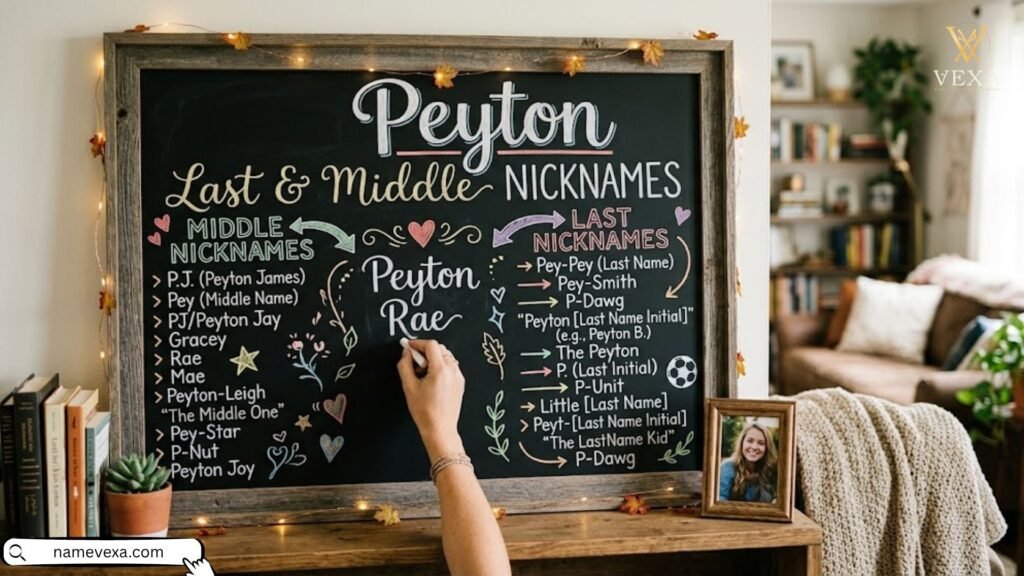 Peyton
Last & Middle NICKNAMES
MIDDLE
NICKNAMES
P.J. (Peyton James)
Pey (Middle Name)
PJ/Peyton Jay
Gracey
Rae
Mae
Peyton-Leigh
"The Middle One"
Pey-Star
P-Nut
Peyton Joy
Peyton
Rae
LAST
NICKNAMES
Pey-Pey (Last Name)
Pey-Smith
P-Dawg
"Peyton [Last Name Initial]"
(e.g., Peyton B.)
The Peyton
P. (Last Initial)
P-Unit
Little [Last Name]
Peyt-[Last Name Initial]
"The LastName Kid"
P-Dawg
VEXA
namevexa.com